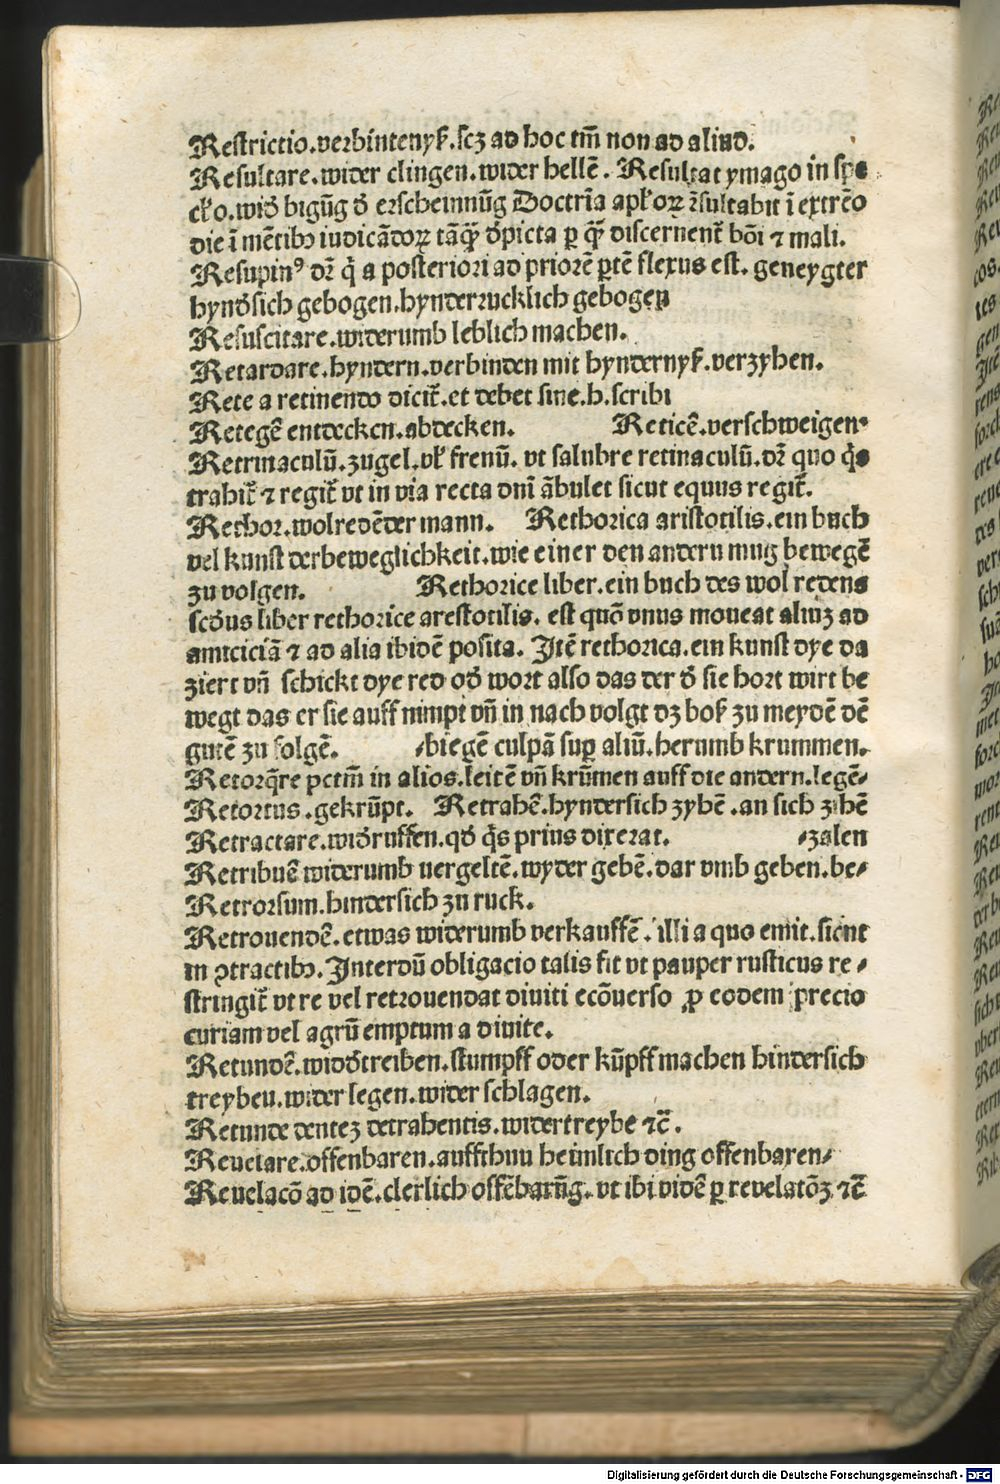 Restrictio.verbintenyſ.ſcz ad hoc tm̄ non ad aliud.
Reſultare.wider clingen.wider hellē. Reſultat ymago in ſpe
cl̓o.wid̓ bigūg d̓ erſcheinnūg Doctrīa apl̓oꝝ r̄ſultabit ī extrēo
die ī mētibꝫ iudicādoꝝ tāꝙ̄ d̓picta ꝑ ꝙ̄ diſcernent̄ bōi ⁊ mali.
Reſupinꝰ dr̄ q̇ a poſteriori ad priorē ꝑtē flexus eſt. geneygter
hynd̓ſich gebogen.hynderrucklich gebogen
Reſuſcitare.widerumb leblich machen.
Retardare.hyndern.verbinden mit hyndernyſ.verzyhen.
Rete a retinendo dicit̄.et debet ſine.h.ſcribi
Retegē entdecken.abdecken. Reticē.verſchweigen.
Retrinaculū.zugel.vl̓ frenū. vt ſalubre retinaculū.dr̄ quo q̇s
trahit̄ ⁊ regit̄ vt in via recta dnī ābulet ſicut equus regit̄.
Rethor.wolredēder mann. Rethorica ariſtotilis.ein buch
vel kunſt derbeweglichkeit.wie einer den andern mug bewegē
zu volgen. Rethorice liber.ein buch des wol redens
ſcd̓us liber rethorice areſtotilis. eſt quō vnus moueat aliuz ad
amiciciā ⁊ ad alia ibidē poſita. Itē rethorica.ein kunſt dye da
ziert vn̄ ſchickt dye red od̓ wort alſo das der d̓ ſie hort wirt be
wegt das er ſie auff nimpt vn̄ in nach volgt dz boſ zu meydē dē
gutē zu folgē. ⸗biegē culpā ſuꝑ aliū.herumb krummen.
Retorq̄re pctm̄ in alios.leitē vn̄ krūmen auff die andern.legē⸗
Retortus.gekrūpt. Retrahē.hynderſich zyhē.an ſich zihē
Retractare.wid̓ruffen.qd̓ q̇s prius dixerat. ⸗zalen
Retribuē widerumb uergeltē.wyder gebē.dar vmb geben.be⸗
Retrorſum.hinderſich zu ruck.
Retrouendē.etwas widerumb verkauffē.illi a quo emit.ſicut
in ꝯtractibꝫ.Interdū obligacio talis fit vt pauper ruſticus re⸗
ſtringit̄ vt re vel retrouendat diuiti ecōuerſo ꝓ eodem precio
curiam vel agrū emptum a diuite.
Retundē.wid̓d̓treiben.ſtumpff oder kūpff machen hinderſich
treyben.wider legen.wider ſchlagen.
Retunde dentez detrahentis.widertreybe ⁊c̄.
Reuelare.offenbaren.auffthun heimlich ding offenbaren⸗
Reuelacō ad idē.clerlich offēbarūg.vt ibi vidē ꝑ revelatōꝫ ⁊c̄
Digitalisierung gefördert durch die Deutsche Forschungsgemeinschaft - DFG